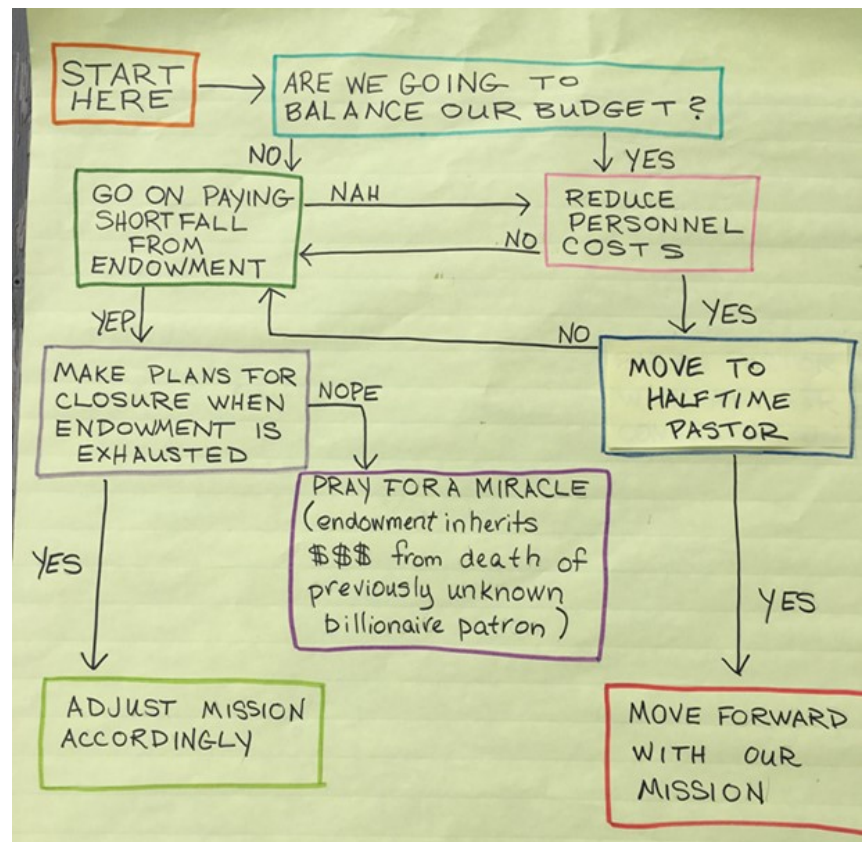 START
HERE
ARE WE GOING TO
BALANCE OUR BUDGET?
NO
YES
GO ON PAYING
SHORTFALL
FROM
ENDOWMENT
NAH
NO
REDUCE
PERSONNEL
COSTS
YEP
NO
YES
MAKE PLANS FOR
CLOSURE WHEN
ENDOWMENT IS
EXHAUSTED
NOPE
MOVE TO
HALFTIME
PASTOR
PRAY FOR A MIRACLE
(endowment inherits
$$$ from death of
previously unknown
billionaire patron)
YES
YES
ADJUST MISSION
ACCORDINGLY
MOVE FORWARD
WITH OUR
MISSION